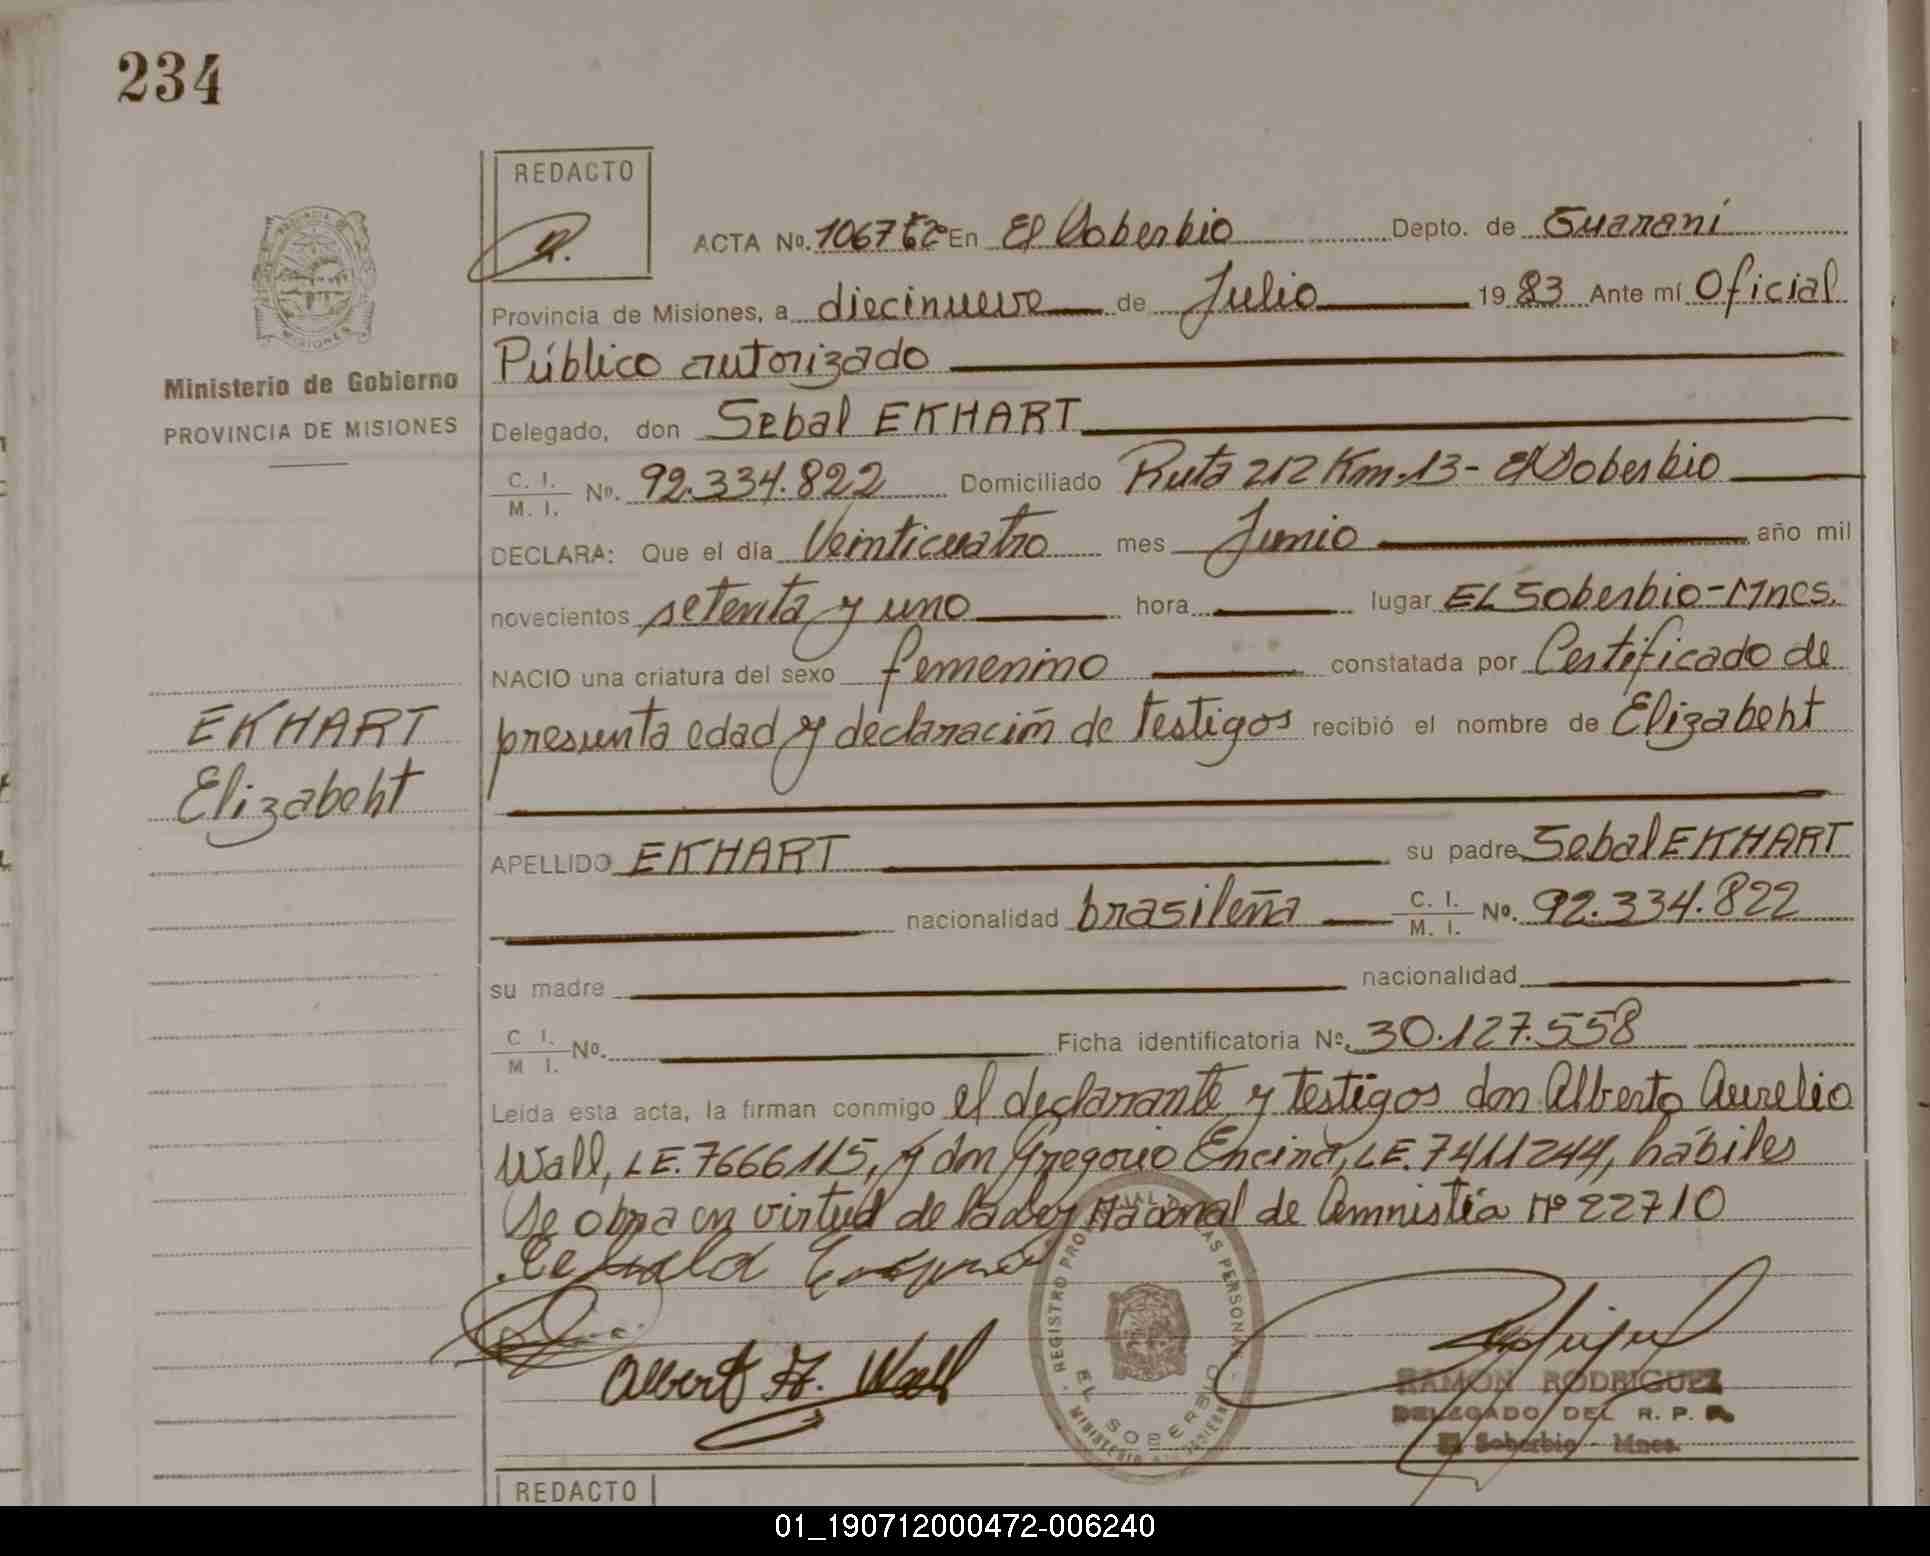 234
REDACTO
ACTA No. En El Soberbio Depto. de Guaraní
Provincia de Misiones, a diecinueve de Julio 1983 Ante mí Oficial
Público autorizado
Ministerio de Gobierno
PROVINCIA DE MISIONES
Delegado, don Sebal EKHART
C. I.
M. I. No. 92.334.822 Domiciliado Ruta 212 Km-13- El Soberbio
DECLARA: Que el día Veinticuatro mes Junio año mil
novecientos setenta y uno hora lugar EL Soberbio-Mnes.
NACIO una criatura del sexo femenino constatada por Certificado de
EKHART
presunta edad y declaración de testigos recibió el nombre de Elizabeht
Elizabeht
APELLIDO EKHART su padre Sebal EKHART
nacionalidad brasileña C. I.
M. I. No. 92.334.822
su madre nacionalidad
C I.
M I. No. Ficha identificatoria No. 30.127.558
Leída esta acta, la firman conmigo el declarante y testigos don Alberto Aurelio
Wall, LE. 7666115, y don Gregorio Encina, LE. 7411244, hábiles
Se obra en virtud de la Ley Nacional de Amnistía Nº 22710
Albert A. Wall
EL SOBERBIO
RAMON RODRIGUEZ
DELEGADO DEL R. P.
El Soberbio - Mnes.
REDACTO
01_190712000472-006240